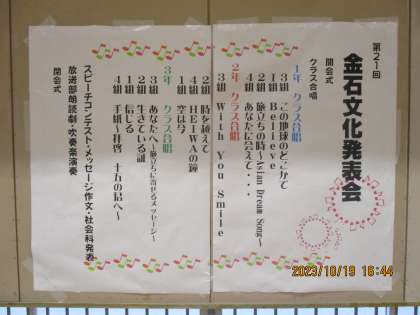 第21回
金石文化発表会
開会式
クラス合唱
1年 クラス合唱
3組 この地球のどこかで
1組 Believe
2組 旅立ちの時~Asian Dream Song~
4組 あなたに会えて・・・
2年 クラス合唱
3組 With You Smile
2組 時を越えて
4組 HEIWAの鐘
1組 空は今
3年 クラス合唱
3組 あなたへ~旅立ちに寄せるメッセージ~
2組 生きている証
1組 信じる
4組 手紙~拝啓 十五の君へ~
スピーチコンテスト・メッセージ作文・社会科発表
放送部朗読劇・吹奏楽演奏
閉会式
2023/10/19 16:44